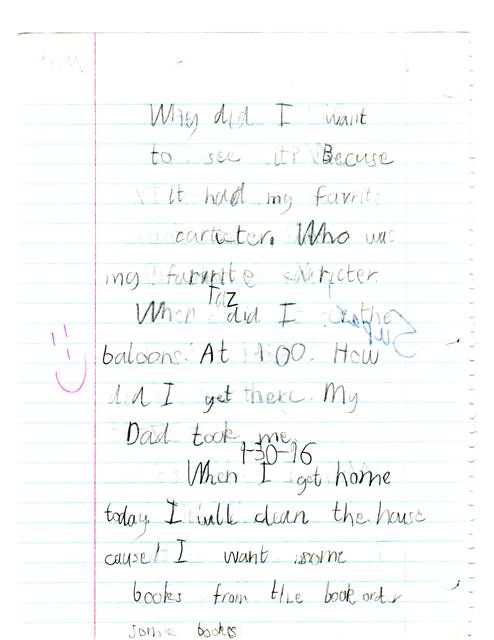 Why did I want
to see it? Becuse
it had my favrite
caricter. Who was
my favrite caricter.
Taz
When did I see the
baloons. At 1:00. How
did I get there. My
Dad took me.
1-30-96
When I get home
today. I will clean the house
cause! I want some
books from the book order
some books